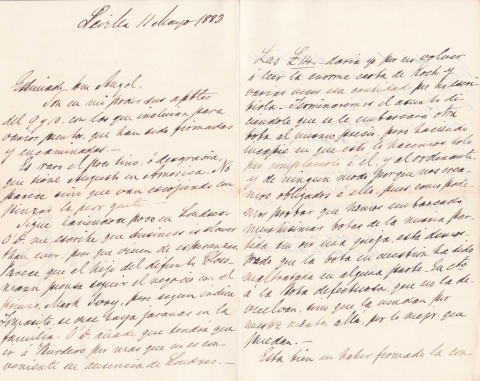 Sevilla 11 Mayo 1883
Estimado Don Angel,
Son en mi poder sus aptbles
del 9 y 10, con los que incluian para
varios puntos, que han sido firmadas
y encaminadas.—
Es raro el poco tino, ó desgracia,
que tiene Augusto en America. No
parece sino que van escojiendo con
pinzas la peor gente.—
Sigue haciendo poco en Londres.
O. B. me escribe que business is slower
than ever, pero que viven de esperanzas
Parece que el hijo del difunto
piensa seguir el negocio con el
Mark Ivory, pero, segun indica
Tomasito, se dice haya jaranas en la
familia. O. B. añade que tendra que
ir á por mas que no es con-
veniente su ausencia de Londres.—
Las £14.— daria yo por no volver
á leer la enorme carta de Koch y
varias veces esa cantidad, por no escri-
birla. Terminaremos el asunto di-
ciendole que se le embarcará otra
bota al mismo precio, pero haciendo
incapié en que esto lo hacemos solo
por complacerle á él, y al ordenante,
y de ningun modo porque nos crea-
mos obligados á ello, pues como pode-
mos probar que hemos embarcado
muchisimas botas de la misma par-
tida sin una queja, está demos-
trado que la bota en cuestion ha sido
maltratada en alguna parte. En cto
á la bota defectuosa, que no la de-
vuelvan, sino que la vendan por
nuestra cuenta, allá, por lo mejor que
puedan.—
Esta bien su haber firmado la con-